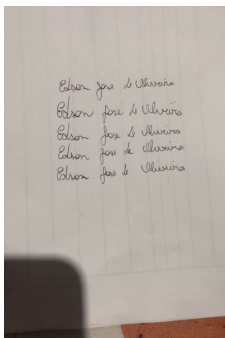 Edson Jose de Oliveira
Edson Jose de Oliveira
Edson Jose de Oliveira
Edson Jose de Oliveira
Edson Jose de Oliveira